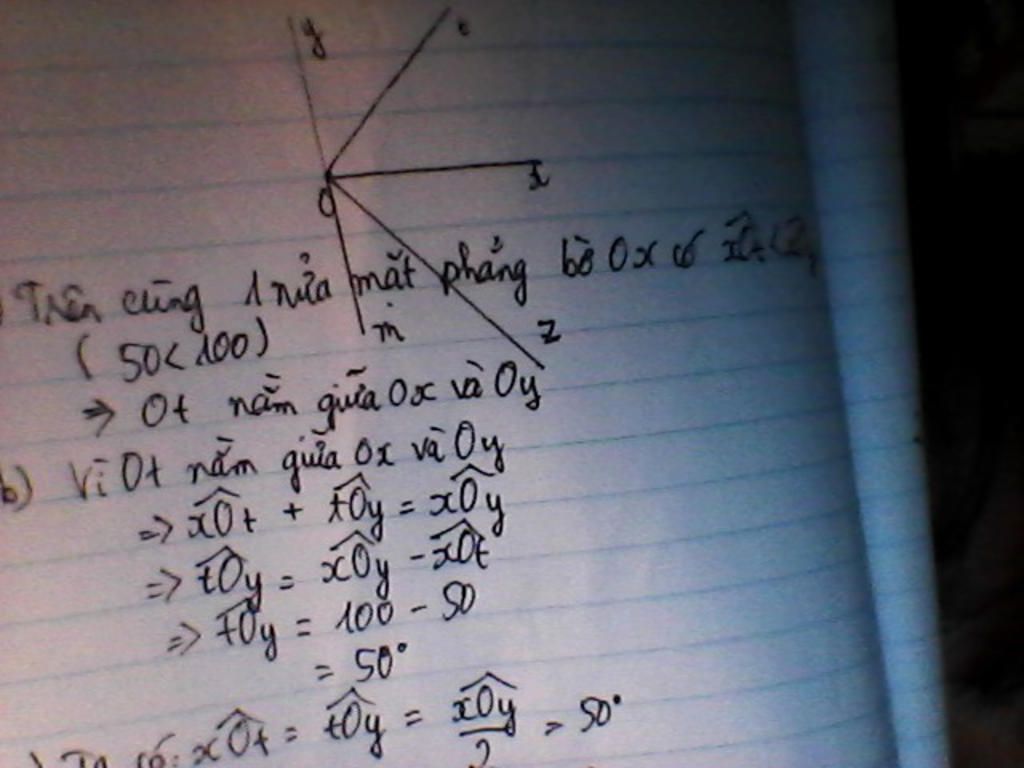 y
x
O
) Trên cùng 1 nửa mặt phẳng bờ Ox có xOt <
m
z
( 50 < 100 )
=> Ot nằm giữa Ox và Oy
b) Vì Ot nằm giữa Ox và Oy
=> xOt + tOy = xOy
=> tOy = xOy - xOt
=> tOy = 100 - 50
= 50°
) Ta có: xOt = tOy = xOy/2 = 50°